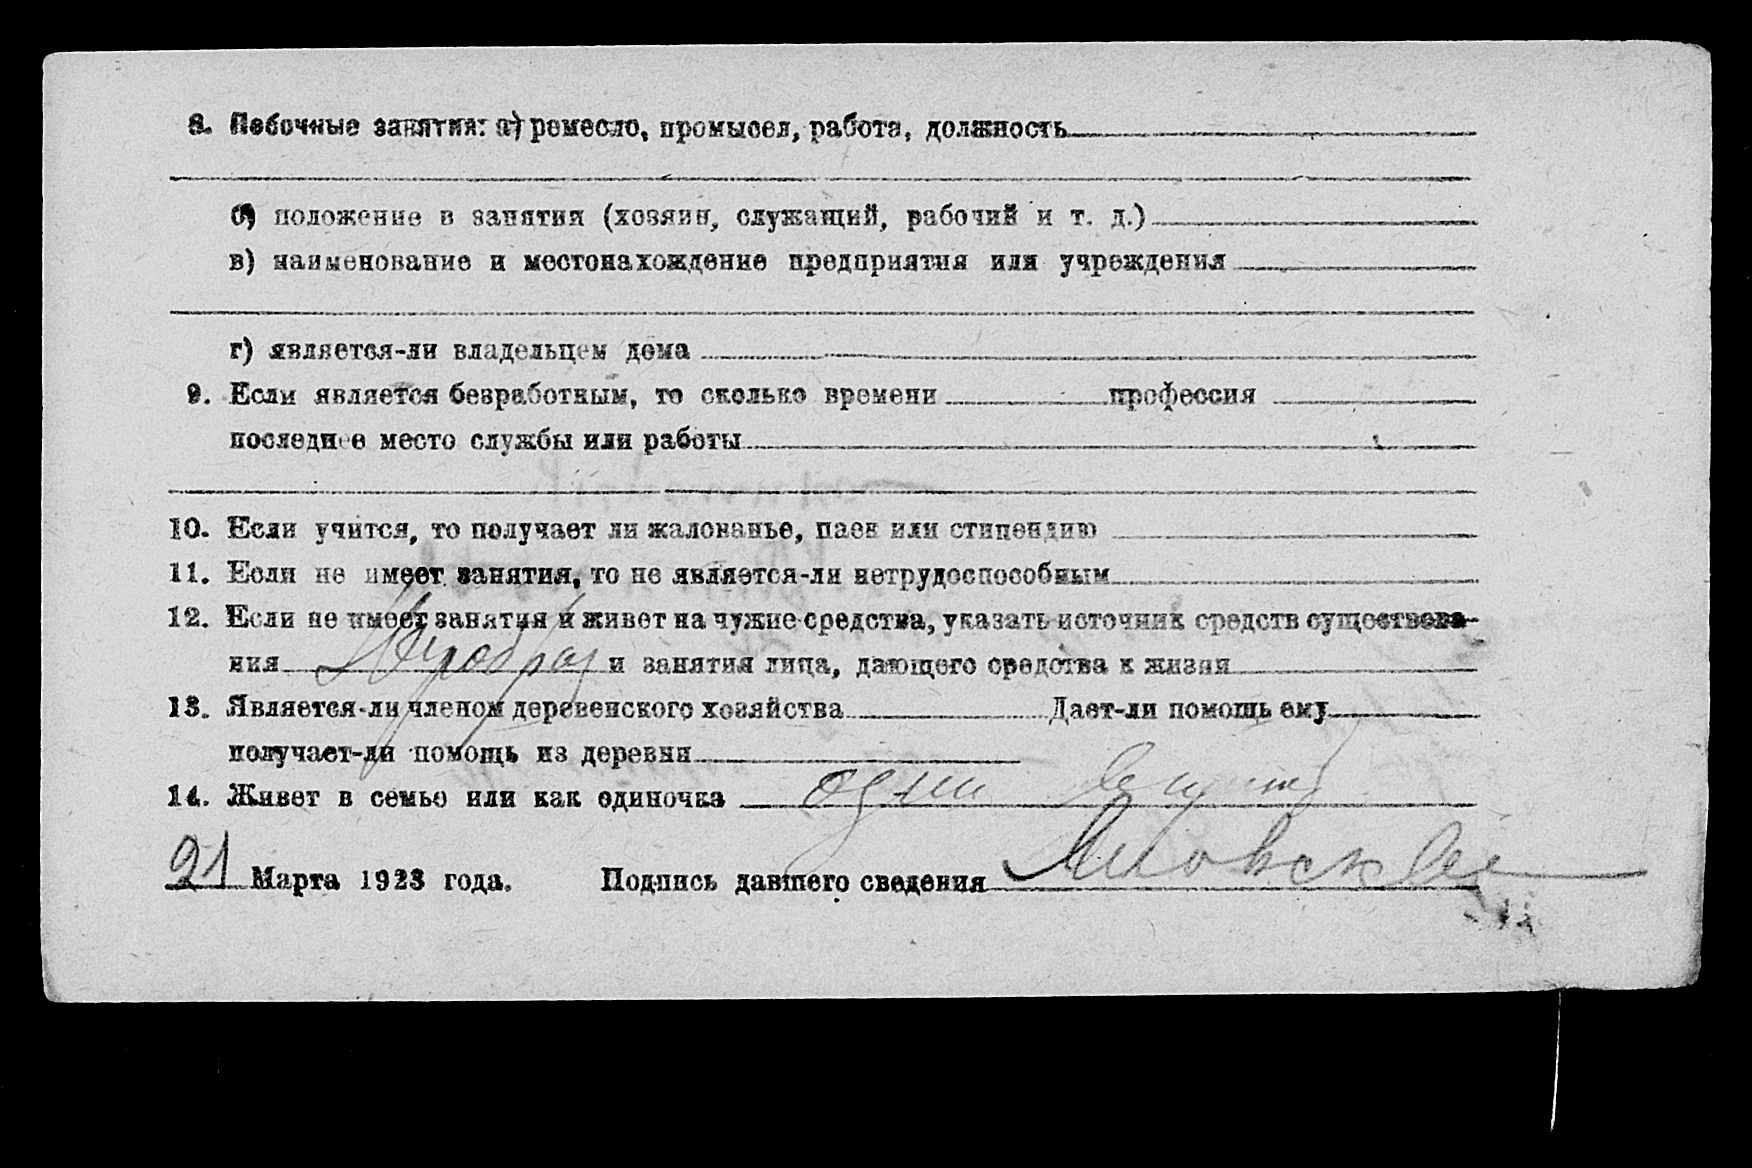 8. Побочные занятия: а) ремесло, промысел, работа, должность
б) положение в занятии (хозяин, служащий, рабочий и т. д.)
в) наименование и местонахождение предприятия или учреждения
г) является-ли владельцем дома
9. Если является безработным, то сколько времени профессия
последнее место службы или работы
10. Если учится, то получает ли жалованье, паек или стипендию
11. Если не имеет занятия, то не является-ли нетрудоспособным
12. Если не имеет занятия и живет на чужие средства, указать источник средств существова-
ния и занятия лица, дающего средства к жизни
13. Является-ли членом деревенского хозяйства Дает-ли помощь ему
получает-ли помощь из деревни
14. Живет в семье или как одиночка один
21 Марта 1923 года. Подпись давшего сведения